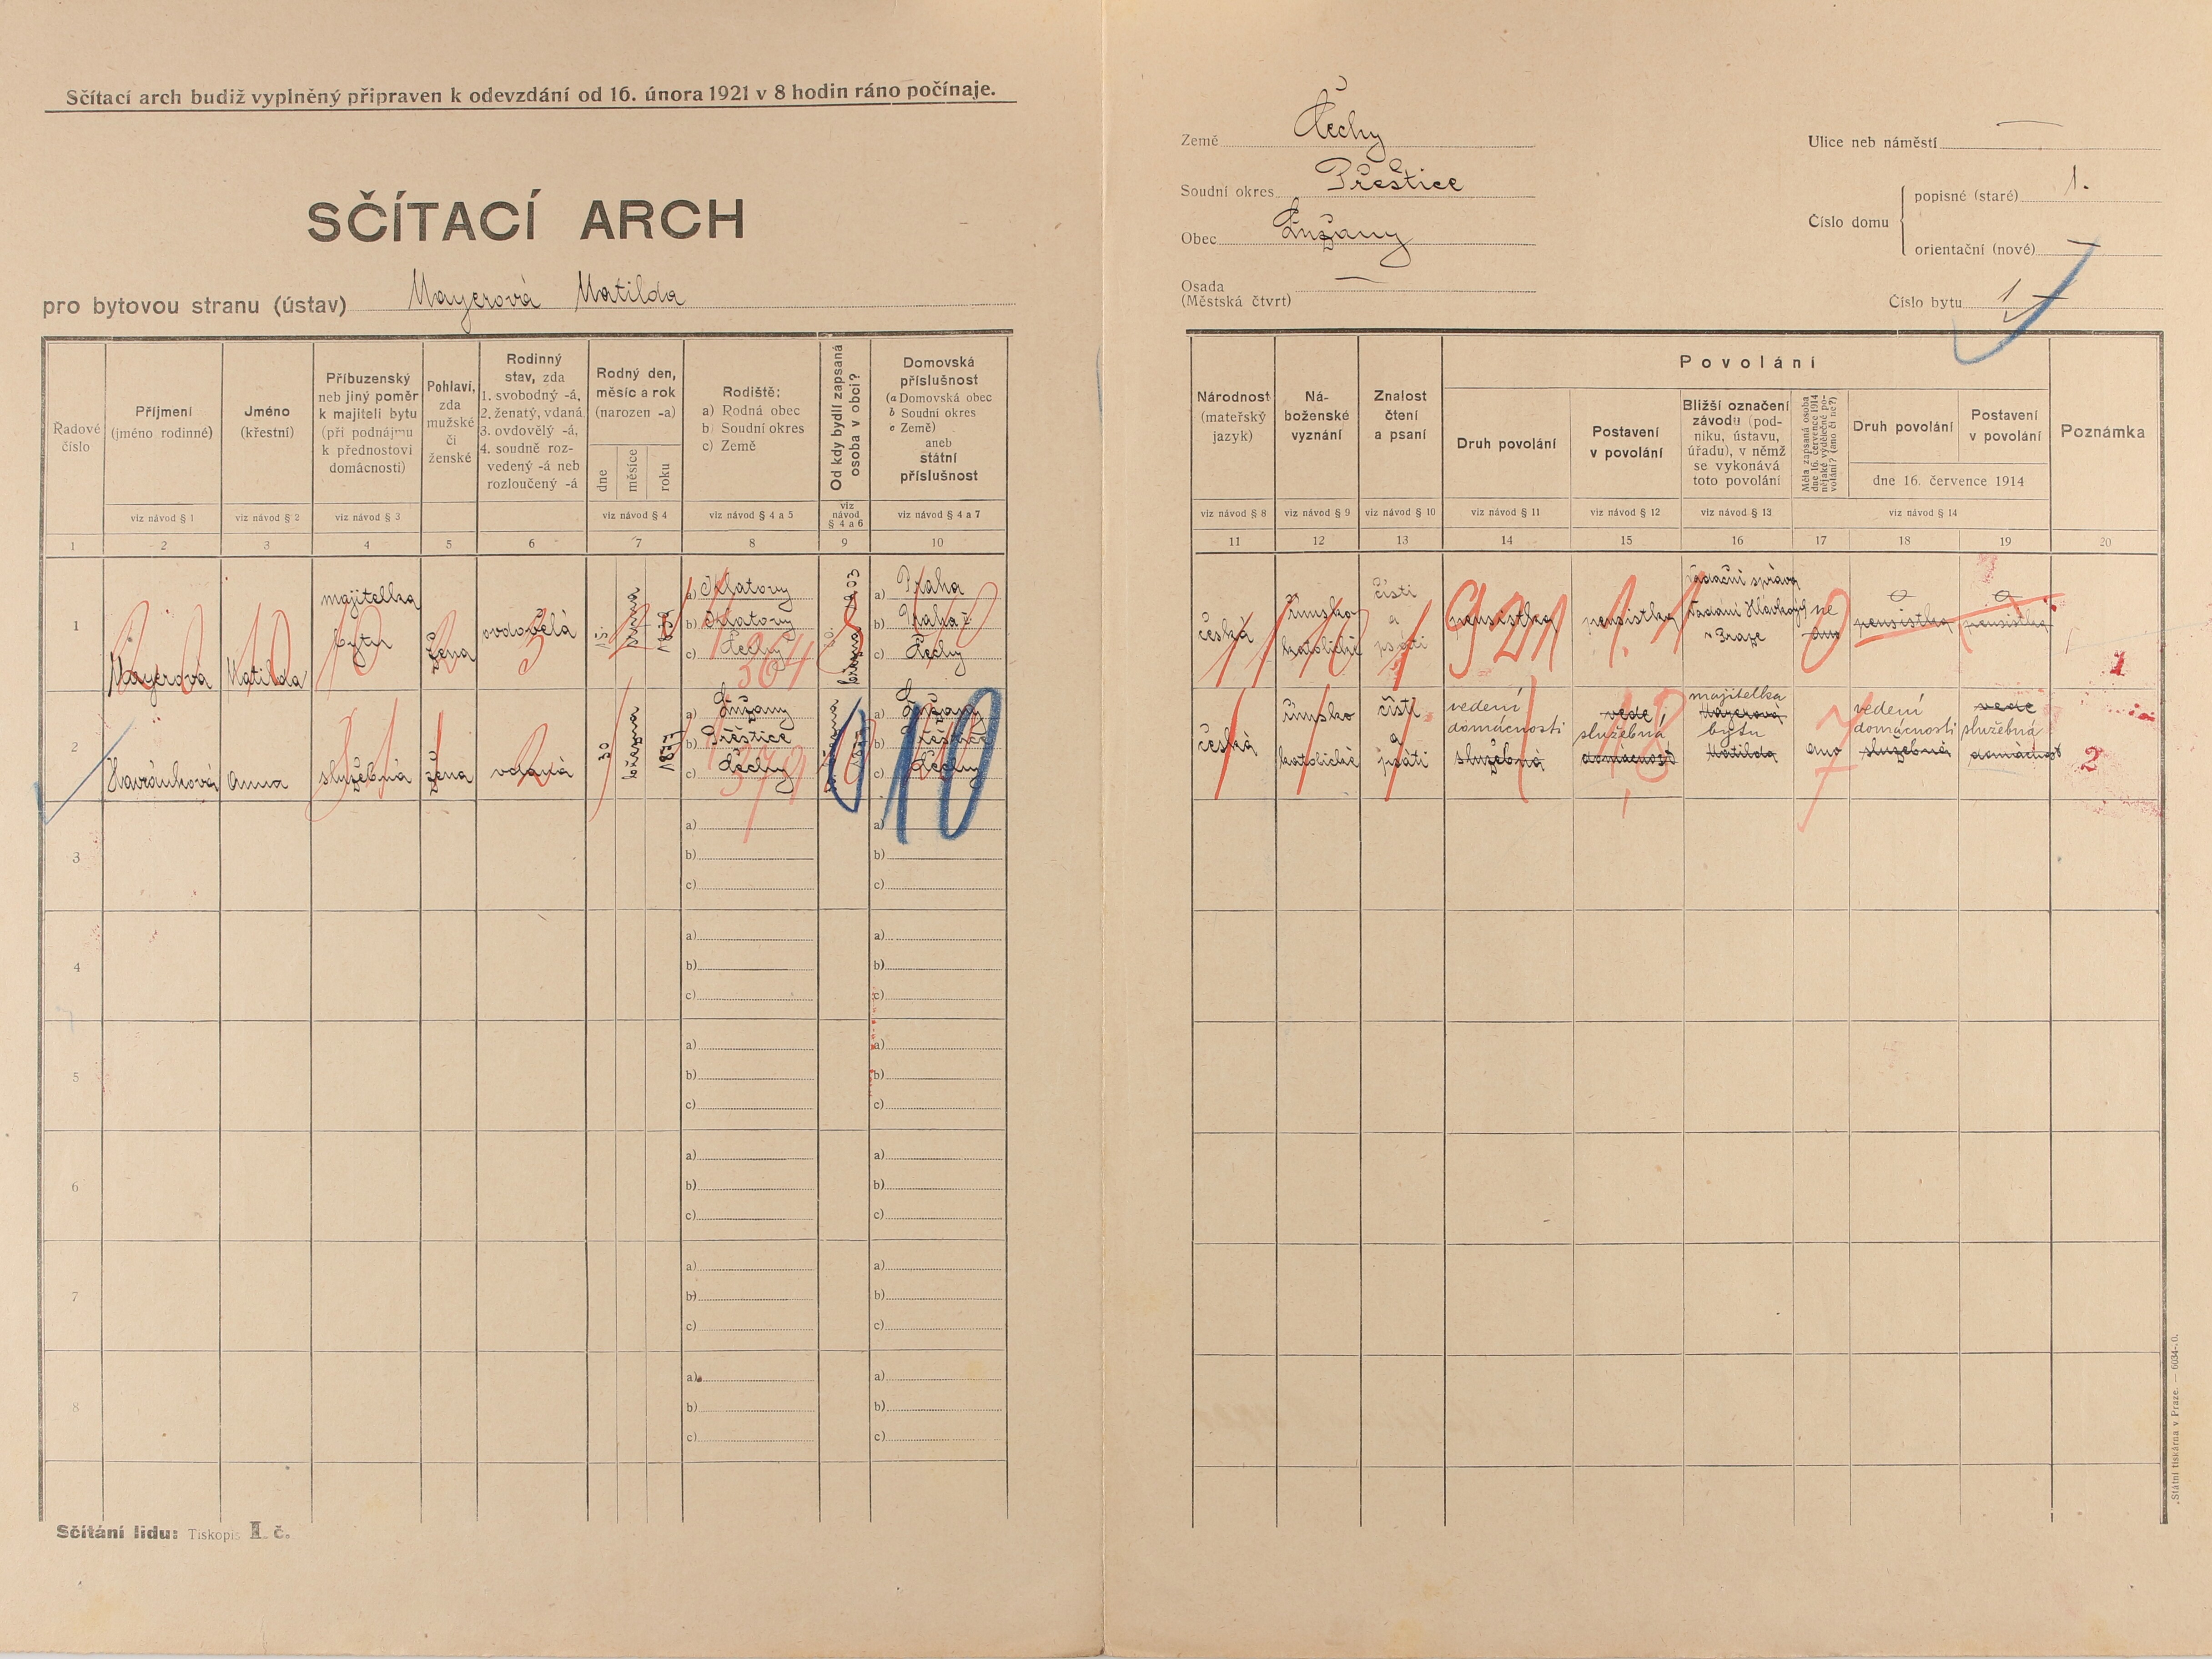 Sčítací arch budiž vyplněný připraven k odevzdání od 16. února 1921 v 8 hodin ráno počínaje.
SČÍTACÍ ARCH
pro bytovou stranu (ústav) Mayerová Matilda
Země Čechy
Soudní okres Přeštice
Obec Lužany
Osada —
(Městská čtvrť)
Ulice neb náměstí —
Číslo domu
popisné (staré) 1.
orientační (nové) —
Číslo bytu 1
Řadové číslo
Příjmení
(jméno rodinné)
viz návod § 1
Jméno
(křestní)
viz návod § 2
Příbuzenský
neb jiný poměr
k majiteli bytu
(při podnájmu
k přednostovi
domácnosti)
viz návod § 3
Pohlaví,
zda
mužské
či
ženské
Rodinný
stav, zda
1. svobodný -á,
2. ženatý, vdaná
3. ovdovělý -á,
4. soudně roz-
vedený -á neb
rozloučený -á
Rodný den,
měsíc a rok
(narozen -a)
dne
měsíce
roku
viz návod § 4
Rodiště:
a) Rodná obec
b) Soudní okres
c) Země
viz návod § 4 a 5
Od kdy bydlí zapsaná
osoba v obci?
viz
návod
§ 4 a 6
Domovská
příslušnost
(a Domovská obec
b Soudní okres
c Země)
aneb
státní
příslušnost
viz návod § 4 a 7
Národnost
(mateřský
jazyk)
viz návod § 8
Ná-
boženské
vyznání
viz návod § 9
Znalost
čtení
a psaní
viz návod § 10
Povolání
Druh povolání
viz návod § 11
Postavení
v povolání
viz návod § 12
Bližší označení
závodu (pod-
niku, ústavu,
úřadu), v němž
se vykonává
toto povolání
viz návod § 13
Měla zapsaná osoba
dne 16. července 1914
nějaké výdělečné po-
volání? (ano či ne?)
Druh povolání
Postavení
v povolání
dne 16. července 1914
viz návod § 14
Poznámka
1 2 3 4 5 6 7 8 9 10 11 12 13 14 15 16 17 18 19 20
1
Mayerová
Matilda
majitelka
bytu
žena
ovdovělá
15.
a) Klatovy
b) Klatovy
c) Čechy
března
a) Praha
b) Praha
c) Čechy
česká
římsko
katolické
čísti
a
psáti
pensistka
pensistka
nadační správa
nadání Hlávkových
v Praze
ne
ano
pensistka
pensistka
1
2
Havránková
Anna
služebná
žena
vdaná
30
března
a) Lužany
b) Přeštice
c) Čechy
a) Lužany
b) Přeštice
c) Čechy
10
česká
římsko
katolické
čísti
a
psáti
vedení
domácnosti
služebná
vede
služebná
domácnost
majitelka
Mayerová
bytu
Matilda
ano
vedení
domácnosti
služebná
vede
služebná
domácnost
2
3
a)
b)
c)
a)
b)
c)
4
a)
b)
c)
a)
b)
c)
5
a)
b)
c)
a)
b)
c)
6
a)
b)
c)
a)
b)
c)
7
a)
b)
c)
a)
b)
c)
8
a)
b)
c)
a)
b)
c)
Sčítání lidu: Tiskopis I. č.
„Státní tiskárna v Praze. — 6034-20.